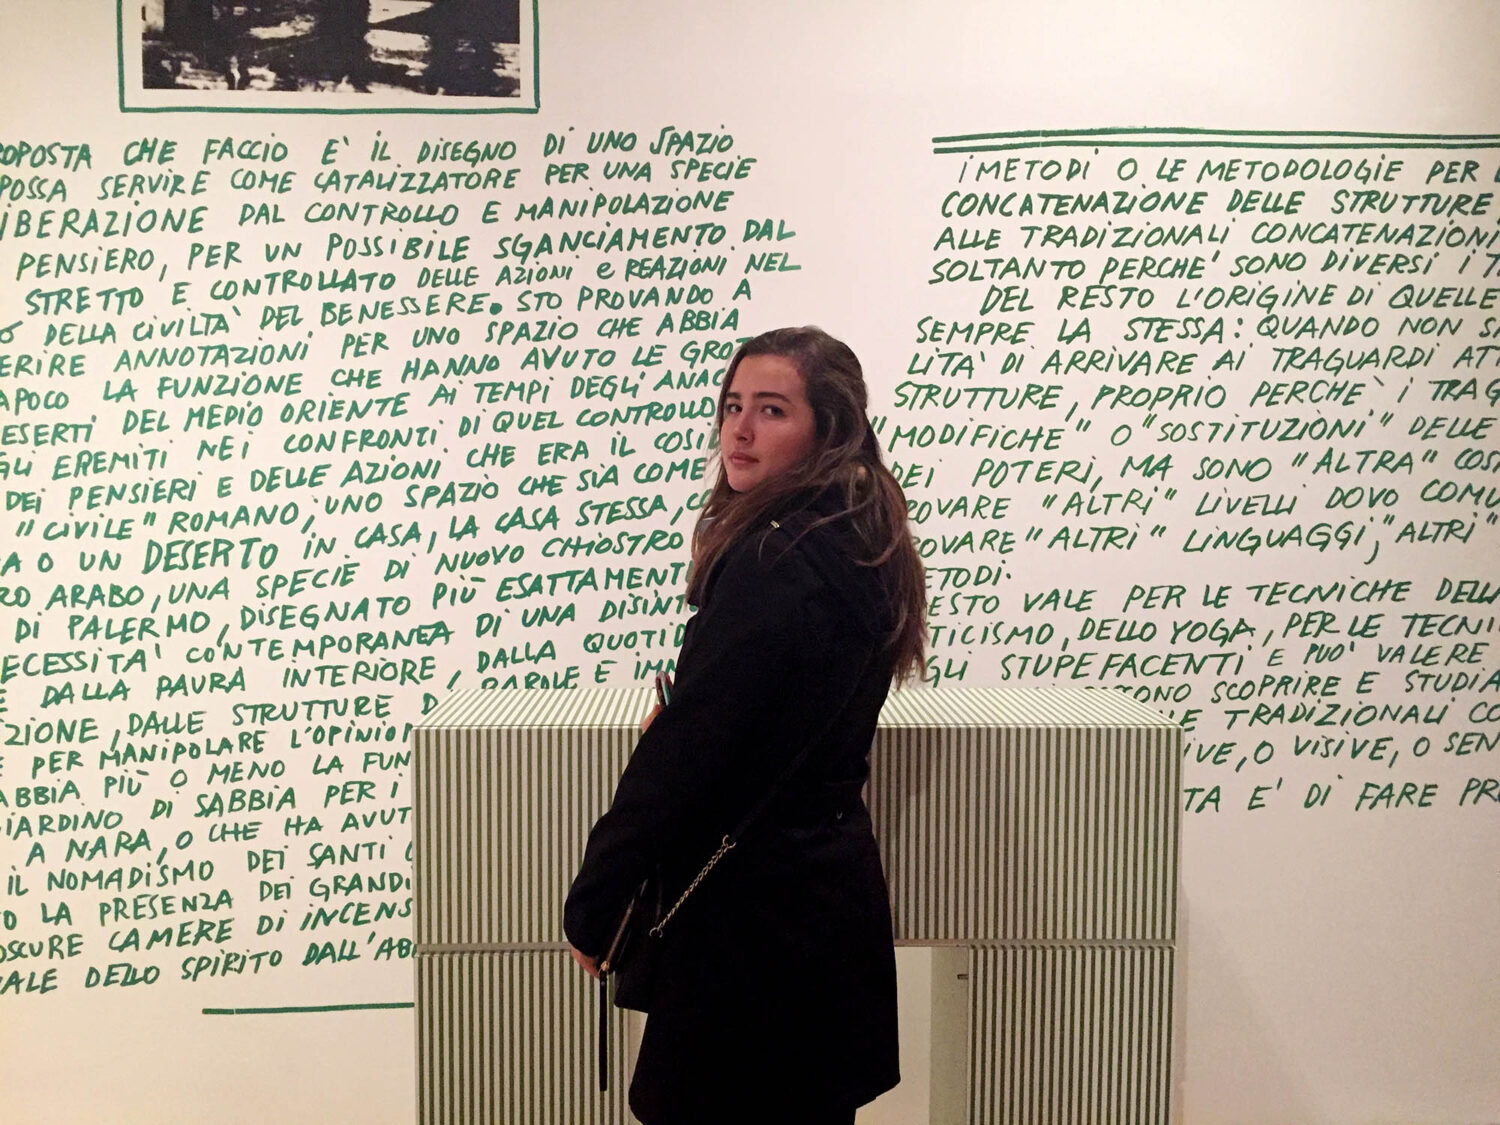 CHE FACCIO E' IL DISEGNO DI UNO SPAZIO
POSSA SERVIRE COME CATALIZZATORE PER UNA SPECIE
DAL CONTROLLO E MANIPOLAZIONE
PENSIERO, PER UN POSSIBILE SGANCIAMENTO DAL
STRETTO E CONTROLLATO DELLE AZIONI e REAZIONI NEL
DELLA CIVILTA' DEL BENESSERE. STO PROVANDO A
ANNOTAZIONI PER UNO SPAZIO CHE ABBIA
LA FUNZIONE CHE HANNO AVUTO LE
DEL MEDIO ORIENTE AI TEMPI DEGLI
EREMITI NEI CONFRONTI DI QUEL CONTROLLO
DEI PENSIERI E DELLE AZIONI CHE ERA IL
"CIVILE" ROMANO, UNO SPAZIO CHE SIA COME
O UN DESERTO IN CASA, LA CASA STESSA,
ARABO, UNA SPECIE DI NUOVO CHIOSTRO
DI PALERMO, DISEGNATO PIÙ ESATTAMENTE
CONTEMPORANEA DI UNA
DALLA PAURA INTERIORE, DALLA
DALLE STRUTTURE PAROLE E
PER MANIPOLARE
ABBIA PIÙ O MENO LA
DI SABBIA PER I
A NARA, O CHE HA
IL NOMADISMO DEI SANTI
LA PRESENZA DEI GRANDI
CAMERE DI
DELLO SPIRITO
I METODI O LE METODOLOGIE PER
CONCATENAZIONE DELLE STRUTTURE,
ALLE TRADIZIONALI CONCATENAZIONI
SOLTANTO PERCHE' SONO DIVERSI I
DEL RESTO L'ORIGINE DI QUELLE
SEMPRE LA STESSA: QUANDO NON
DI ARRIVARE AI TRAGUARDI
STRUTTURE, PROPRIO PERCHE' I
"MODIFICHE" O "SOSTITUZIONI" DELLE
DEI POTERI, MA SONO "ALTRA"
"ALTRI" LIVELLI DOVO
"ALTRI" LINGUAGGI, "ALTRI"
VALE PER LE TECNICHE
DELLO YOGA, PER LE
STUPEFACENTI E PUO' VALERE
SCOPRIRE E
TRADIZIONALI
O VISIVE, O
E' DI FARE